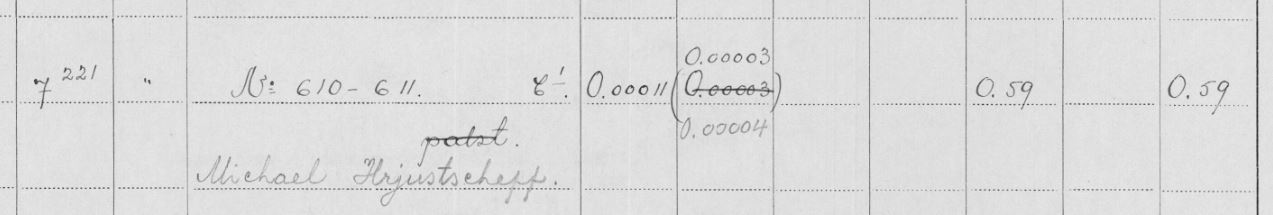 0.00003
7 221 " №: 610-611. 0.00011 (0.00003) 0.59 0.59
0.00004
palst.
Michael Hrjustscheff.